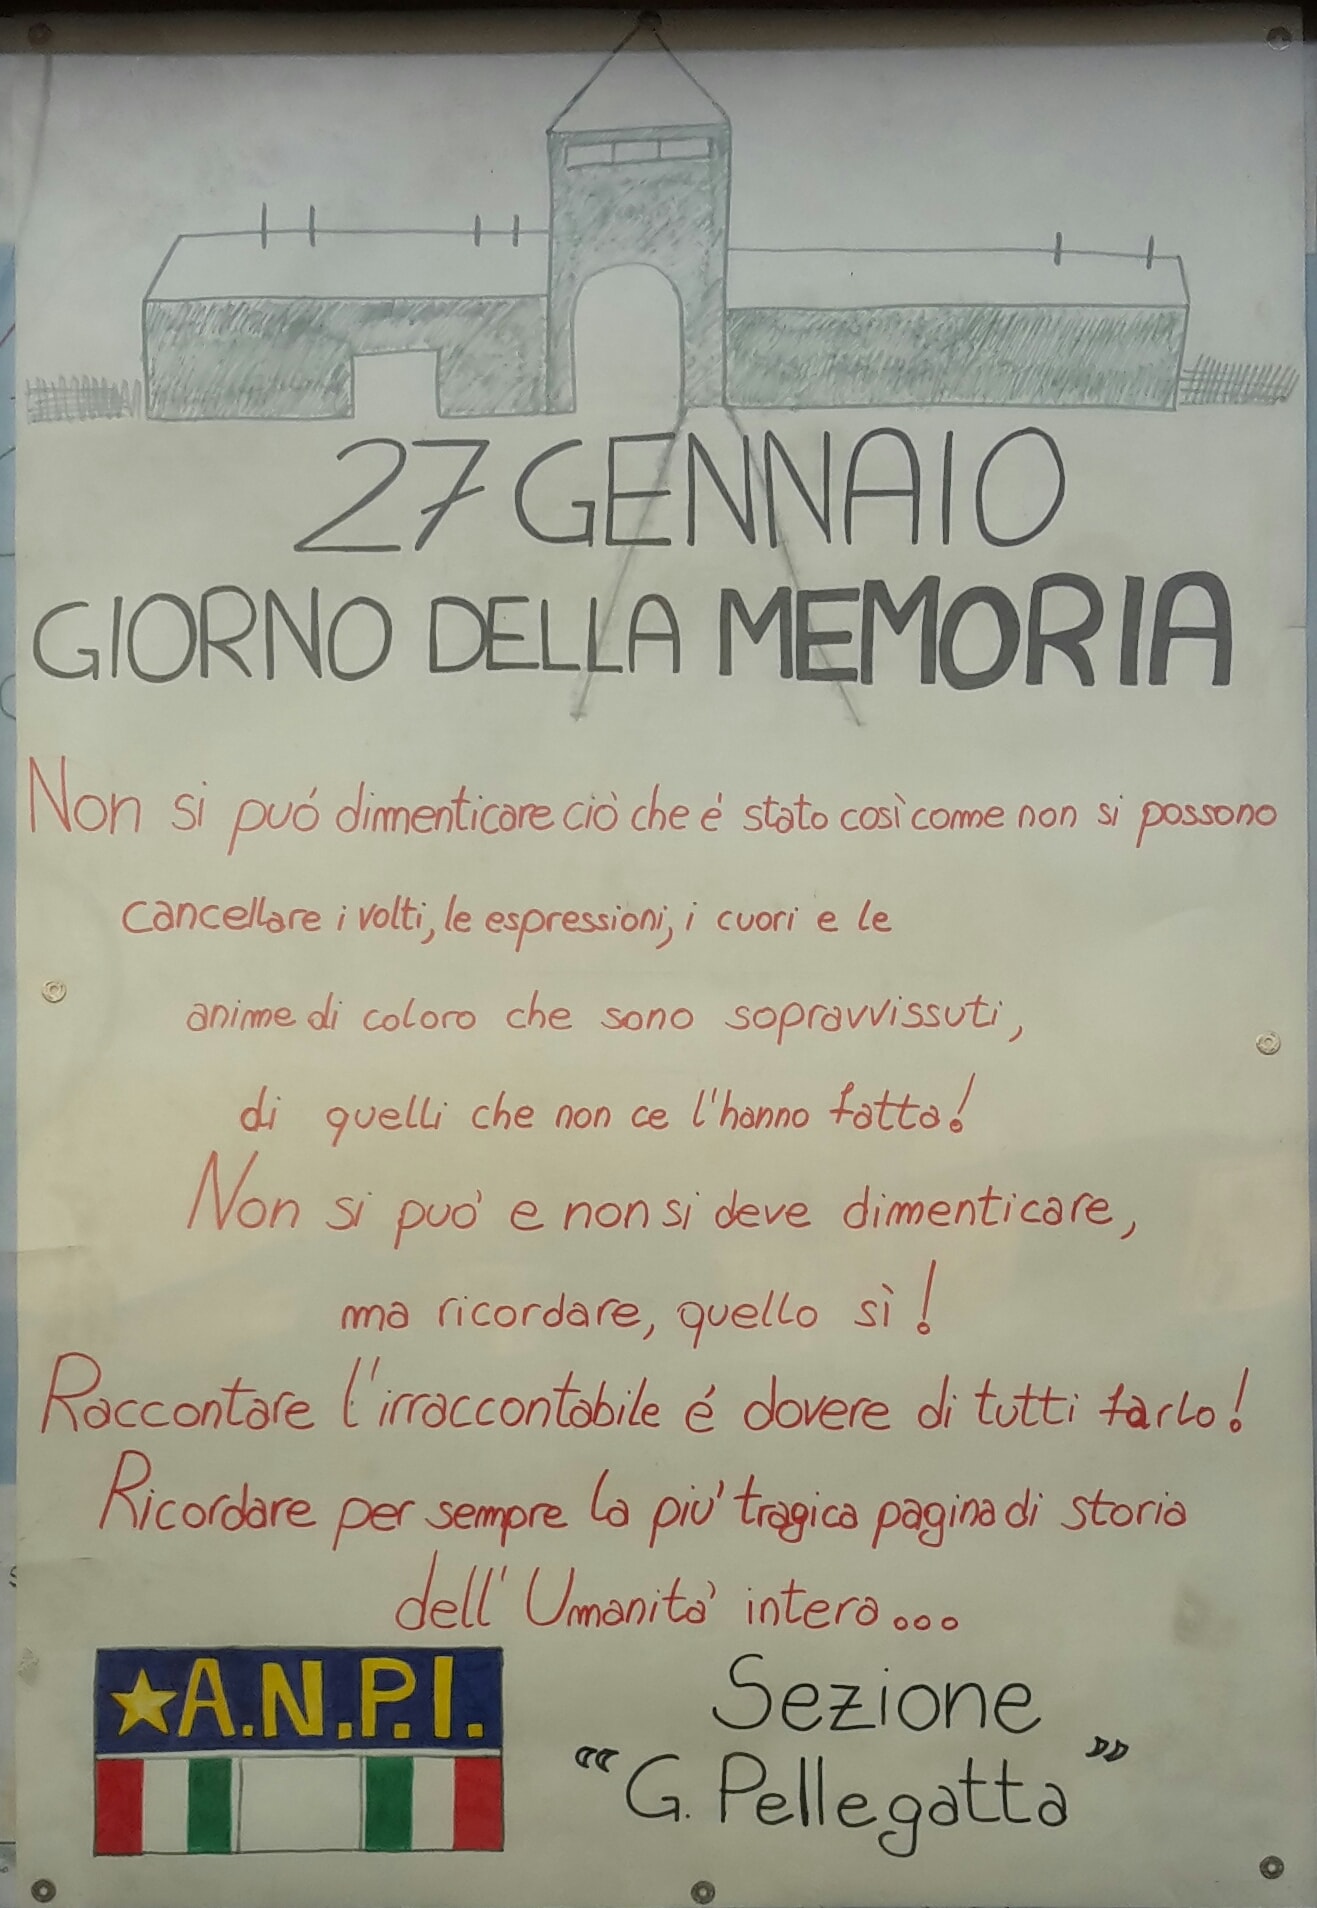 27 GENNAIO
GIORNO DELLA MEMORIA
Non si puó dimenticare ciò che é stato così come non si possono
cancellare i volti, le espressioni, i cuori e le
anime di coloro che sono sopravvissuti,
di quelli che non ce l'hanno fatta!
Non si puo' e non si deve dimenticare,
ma ricordare, quello sì!
Raccontare l'irraccontabile é dovere di tutti farlo!
Ricordare per sempre la piu' tragica pagina di storia
dell'Umanita' intera...
A.N.P.I.
Sezione
"G. Pellegatta"